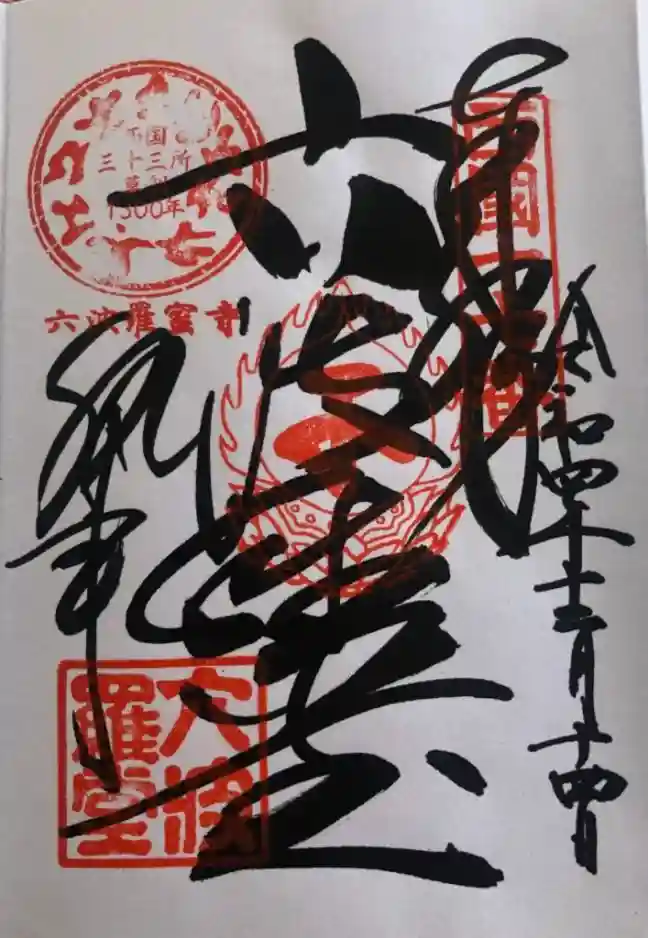 令和四年十二月十四日
奉拝
西國十七番
六波羅堂
西国
三十三所
草創
1300年
六波羅蜜寺
六波
羅堂